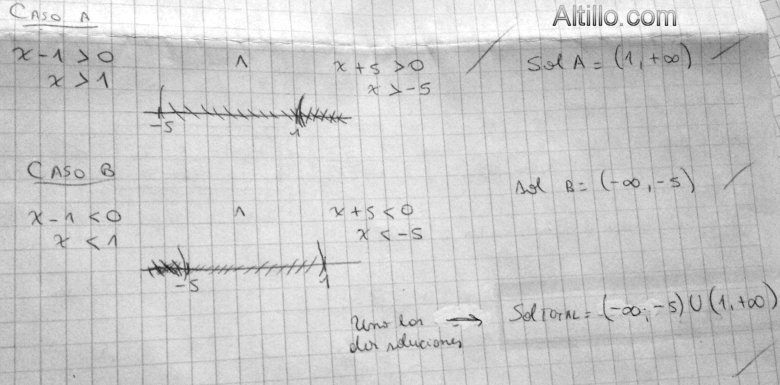 CASO A
Altillo.com
x-1>0 ∧ x+5>0 Sol A = (1,+∞)
x>1 x>-5
-5 1
CASO B
Sol B = (-∞,-5)
x-1<0 ∧ x+5<0
x<1 x<-5
-5 1
Uno las → Sol TOTAL = (-∞;-5) U (1,+∞)
dos soluciones